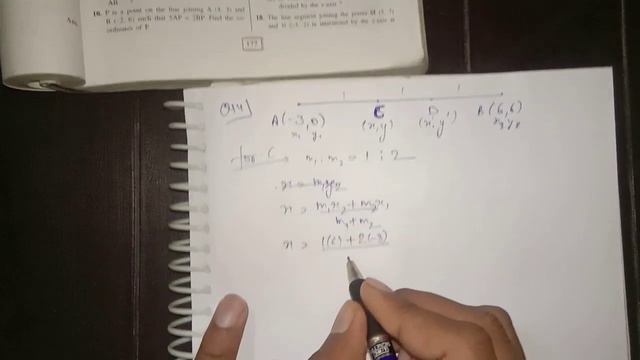 AB
Ans.
10. P is a point on the line joining A (4, 3) and
B (-2, 6) such that 5AP = 2BP. Find the co-
ordinates of P.
divided by the x-axis
18. The line segment joining the points M (5, 7)
is intersected by the y-axis at
177
Q14
1 1 1
A(-3,0) C D B(6,6)
x₁ y₁ (x,y) (x',y') x₂ y₂
for C m₁ : m₂ = 1 : 2
x = m₁x₂
x = m₁x₂ + m₂x₁
m₁ + m₂
x = 1(6) + 2(-3)